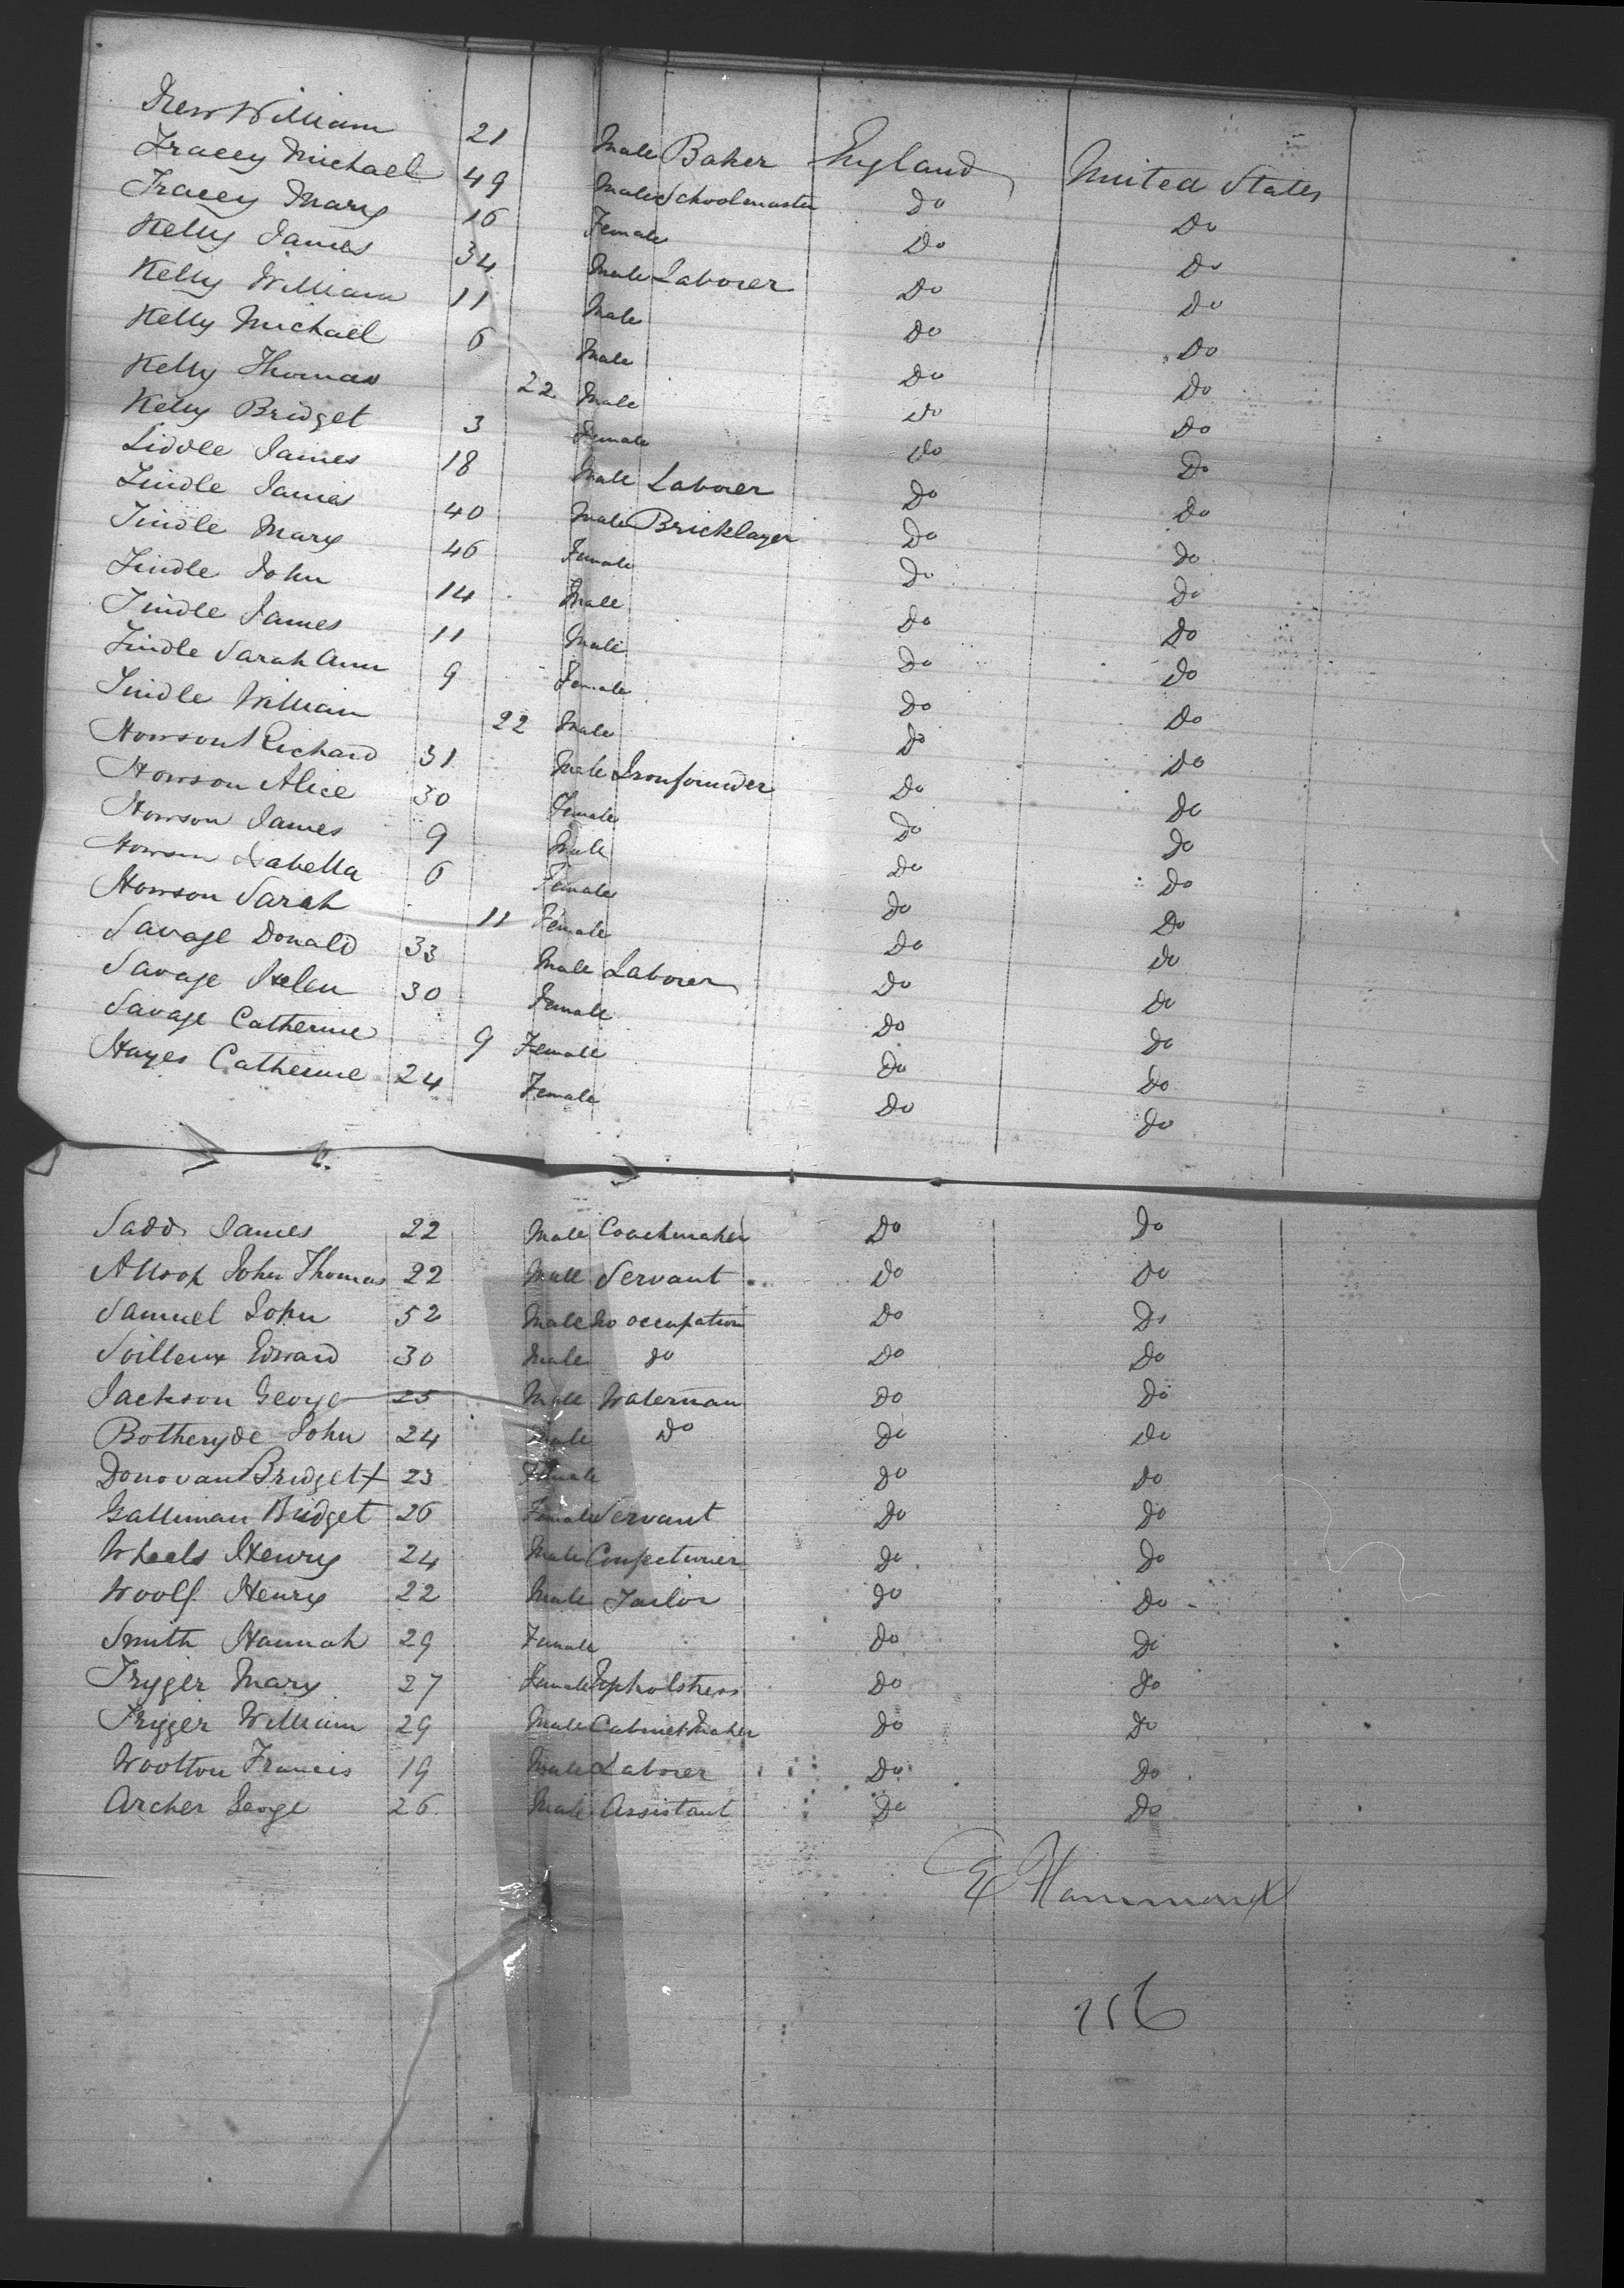 Drew William 21 Male Baker England United States
Tracey Michael 49 Male Schoolmaster Do Do
Tracey Mary 16 Female Do Do
Kelly James 34 Male Laborer Do Do
Kelly William 11 Male Do Do
Kelly Michael 6 Male Do Do
Kelly Thomas 22 Male Do Do
Kelly Bridget 3 Female Do Do
Liddle James 18 Male Laborer Do Do
Tindle James 40 Male Bricklayer Do Do
Tindle Mary 46 Female Do Do
Tindle John 14 Male Do Do
Tindle James 11 Male Do Do
Tindle Sarah Ann 9 Female Do Do
Tindle William 22 Male Do Do
Howson Richard 31 Male Ironfounder Do Do
Howson Alice 30 Female Do Do
Howson James 9 Male Do Do
Howson Isabella 6 Female Do Do
Howson Sarah 11 Female Do Do
Savage Donald 33 Male Laborer Do Do
Savage Helen 30 Female Do Do
Savage Catherine 9 Female Do Do
Hayes Catherine 24 Female Do Do
Sadd James 22 Male Coachmaker Do Do
Allsop John Thomas 22 Male Servant Do Do
Samuel John 52 Male No occupation Do Do
Soilleux Edward 30 Male do Do Do
Jackson George 25 Male Waterman Do Do
Botheryde John 24 Male Do Do Do
Donovan Bridget + 23 Female Do Do
Galliman Bridget 26 Female Servant Do Do
Wheels Henry 24 Male Confectioner Do Do
Woolf Henry 22 Male Tailor Do Do
Smith Hannah 29 Female Do Do
Tryger Mary 27 Female Upholstress Do Do
Trygger William 29 Male Cabinet Maker Do Do
Wootton Francis 19 Male Laborer Do Do
Archer George 26 Male Assistant Do Do
E Hammond
256